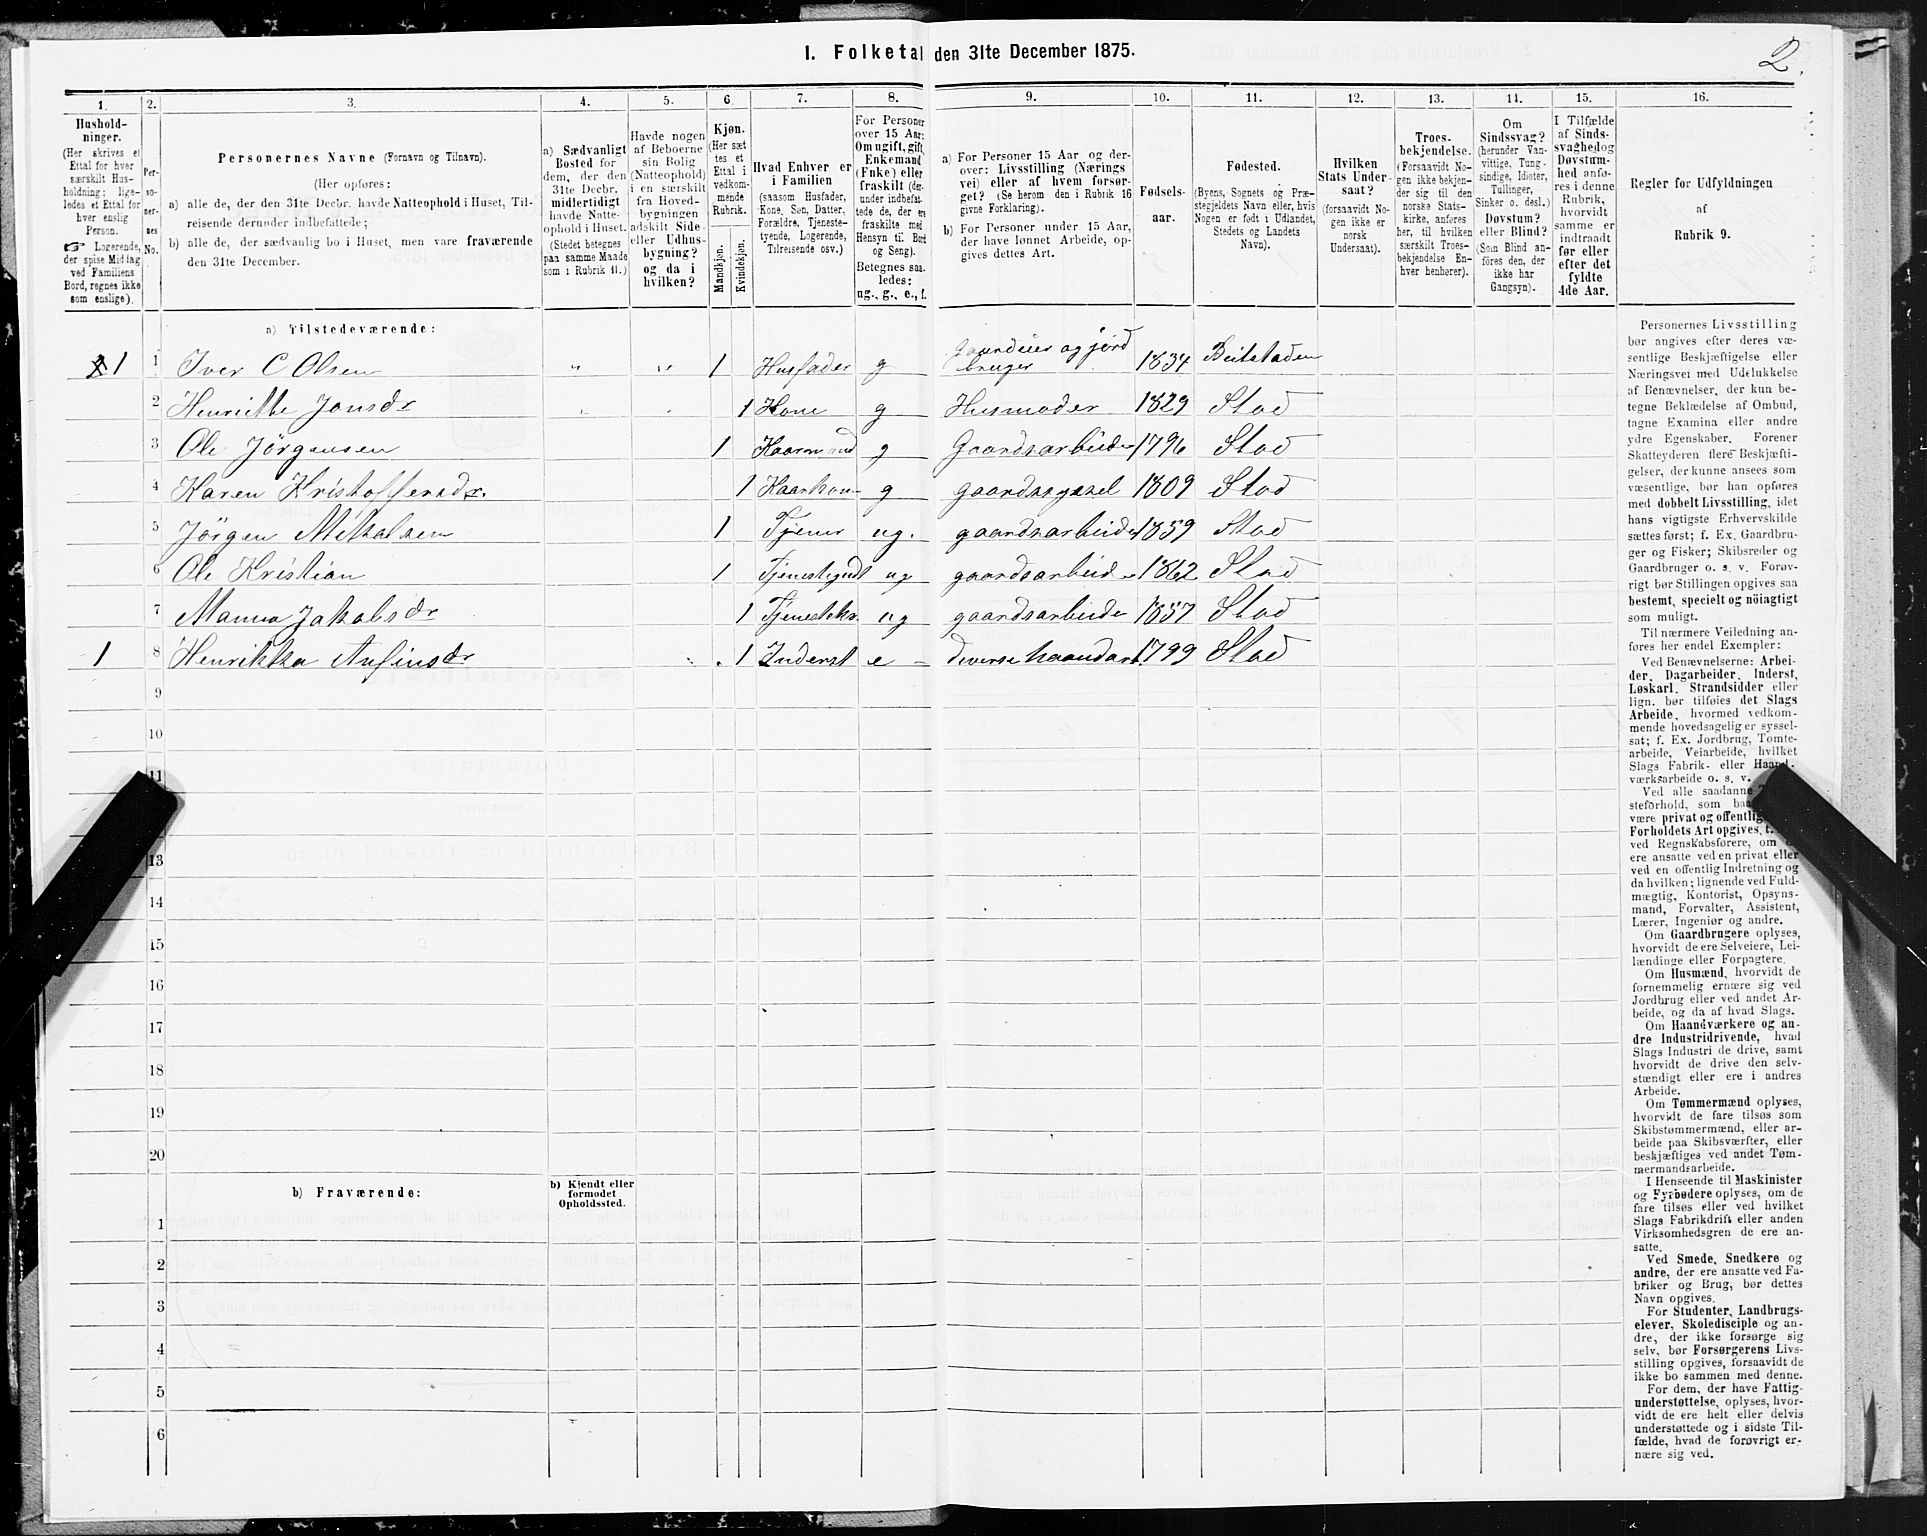 I. Folketal den 31te December 1875.
2.
1. 2. 3. 4. 5. 6. 7. 8. 9. 10. 11. 12. 13. 14. 15. 16.
Hushold-
ninger.
(Her skrives et
Ettal for hver
særskilt Hus-
holdning; lige-
ledes et Ettal for
hver enslig
Person.
☞ Logerende,
der spise Middag
ved Familiens
Bord, regnes ikke
som enslige).
Per-
so-
ner-
nes
No.
Personernes Navne (Fornavn og Tilnavn).
(Her opføres:
a) alle de, der den 31te Decbr. havde Natteophold i Huset, Til-
reisende derunder indbefattede;
b) alle de, der sædvanlig bo i Huset, men vare fraværende
den 31te December.
a) Sædvanligt
Bosted for
dem, der den
31te Decbr.
midlertidigt
havde Natte-
ophold i Huset.
(Stedet betegnes
paa samme Maade
som i Rubrik 11.)
Havde nogen
af Beboerne
sin Bolig
(Natteophold)
i en særskilt
fra Hoved-
bygningen
adskilt Side-
eller Udhus-
bygning?
og da i
hvilken?
Kjøn.
(Her sæt
tes et
Ettal i
vedkom-
mende
Rubrik.
Mandkjøn.
Kvindekjøn.
Hvad Enhver er
i Familien
(saasom Husfader,
Kone, Søn, Datter,
Forældre, Tjeneste-
tyende, Logerende,
Tilreisende osv.)
For Personer
over 15 Aar:
Om ugift, gift,
Enkemand
(Enke) eller
fraskilt (der-
under indbefat-
tede de, der ere
fraskilte med
Hensyn til Bord
og Seng).
Betegnes saa-
ledes:
ug., g., e., f.
a) For Personer 15 Aar og der-
over: Livsstilling (Nærings
vei) eller af hvem forsør-
get? (Se herom den i Rubrik 16
givne Forklaring).
b) For Personer under 15 Aar,
der have lønnet Arbeide, op-
gives dettes Art.
Fødsels-
aar.
Fødested.
(Byens, Sognets og Præ-
stegjeldets Navn eller, hvis
Nogen er født i Udlandet,
Stedets og Landets
Navn).
Hvilken
Stats Under-
saat?
(forsaavidt No-
gen ikke er
norsk
Undersaat).
Troes-
bekjendelse.
(Forsaavidt No-
gen ikke bekjen-
der sig til den
norske Stats-
kirke, anføres
her, til hvilken
særskilt Troes-
bekjendelse En-
hver henhører).
Om
Sindssvag?
(herunder Van-
vittige, Tung-
sindige, Idioter,
Tullinger,
Sinker o. desl.)
Døvstum?
eller Blind?
(Som Blind an-
føres den, der
ikke har
Gangsyn).
I Tilfælde
af Sinds-
svaghed og
Døvstum-
hed anfø-
res i denne
Rubrik,
hvorvidt
samme er
indtraadt
før eller
efter det
fyldte
4de Aar.
Regler for Udfyldningen
af
Rubrik 9.
a) Tilstedeværende:
1 1 Iver C Olsen " " 1 Husfader g Gaardeier og jord
bruger 1834 Beitstaden
2 Henriette Jonsdr 1 Kone g Husmoder 1829 Stod
3 Ole Jörgensen 1 Kaarmand g Gaardsarbeide 1796 Stod
4 Karen Kristoffersdr. 1 Kaarkone g gaardssysel 1809 Stod
5 Jörgen Mikalsen 1 Tjener ug. gaardsarbeide 1859 Stod
6 Ole Kristian 1 ug gaardsarbeide 1862 Stod
7 Jakobsdr 1 ug gaardsarbeide 1857 Stod
1 8 Henrikka Anfinsdr 1 Inderst e diverse haandarb 1799 Stod
9
10
11
13
14
15
16
17
18
19
20
b) Fraværende:
b) Kjendt eller
formodet
Opholdssted.
1
2
3
4
5
6
Personernes Livsstilling
bør angives efter deres væ-
sentlige Beskjæftigelse eller
Næringsvei med Udelukkelse
af Benævnelser, der kun be-
tegne Beklædelse af Ombud,
tagne Examina eller andre
ydre Egenskaber. Forener
Skatteyderen flere Beskjæfti-
gelser, der kunne ansees som
væsentlige, bør han opføres
med dobbelt Livsstilling, idet
hans vigtigste Erhvervskilde
sættes først; f. Ex. Gaardbru-
ger og Fisker; Skibsreder og
Gaardbruger o. s. v. Forøv-
rigt bør Stillingen opgives saa
bestemt, specielt og nöiagtigt
som muligt.
Til nærmere Veiledning an-
føres her endel Exempler:
Ved Benævnelserne: Arbei-
der, Dagarbeider, Inderst,
Løskarl, Strandsidder eller
lign. bør tilføies det Slags
Arbeide, hvormed vedkom-
mende hovedsagelig er syssel-
sat; f. Ex. Jordbrug, Tomte-
arbeide, Veiarbeide, hvilket
Slags Fabrik- eller Haand-
værksarbeide o. s. v.
Ved alle saadanne
steforhold, som
være privat og offentlig
Forholdets Art opgives, t.
ved Regnskabsførere, om
ere ansatte ved en privat eller
ved en offentlig Indretning og
da hvilken; lignende ved Fuld-
mægtig, Kontorist, Opsyns-
mand, Forvalter, Assistent,
Lærer, Ingeniør og andre.
Om Gaardbrugere oplyses,
hvorvidt de ere Selveiere, Lei-
lændinge eller Forpagtere.
Om Husmænd, hvorvidt de
fornemmelig ernære sig ved
Jordbrug eller ved andet Ar-
beide, og da af hvad Slags.
Om Haandværkere og an-
dre Industridrivende, hvad
Slags Industri de drive, samt
hvorvidt de drive den selv-
stændigt eller ere i andres
Arbeide.
Om Tømmermænd oplyses,
hvorvidt de fare tilsøs som
Skibstømmermænd, eller ar-
beide paa Skibsværfter, eller
beskjæftiges ved andet Tøm-
mermandsarbeide.
I Henseende til Maskinister
og Fyrbødere oplyses, om de
fare tilsøs eller ved hvilket
Slags Fabrikdrift eller anden
Virksomhedsgren de ere an-
satte.
Ved Smede, Snedkere og
andre, der ere ansatte ved Fa-
briker og Brug, bør dettes
Navn opgives.
For Studenter, Landbrugs-
elever, Skoledisciple og an-
dre, der ikke forsørge sig
selv, bør Forsørgerens Livs-
stilling opgives, forsaavidt de
ikke bo sammen med denne.
For dem, der have Fattig-
understøttelse, oplyses, hvor-
vidt de ere helt eller delvis
understøttede og i sidste Til-
fælde, hvad de forøvrigt er-
nære sig ved.